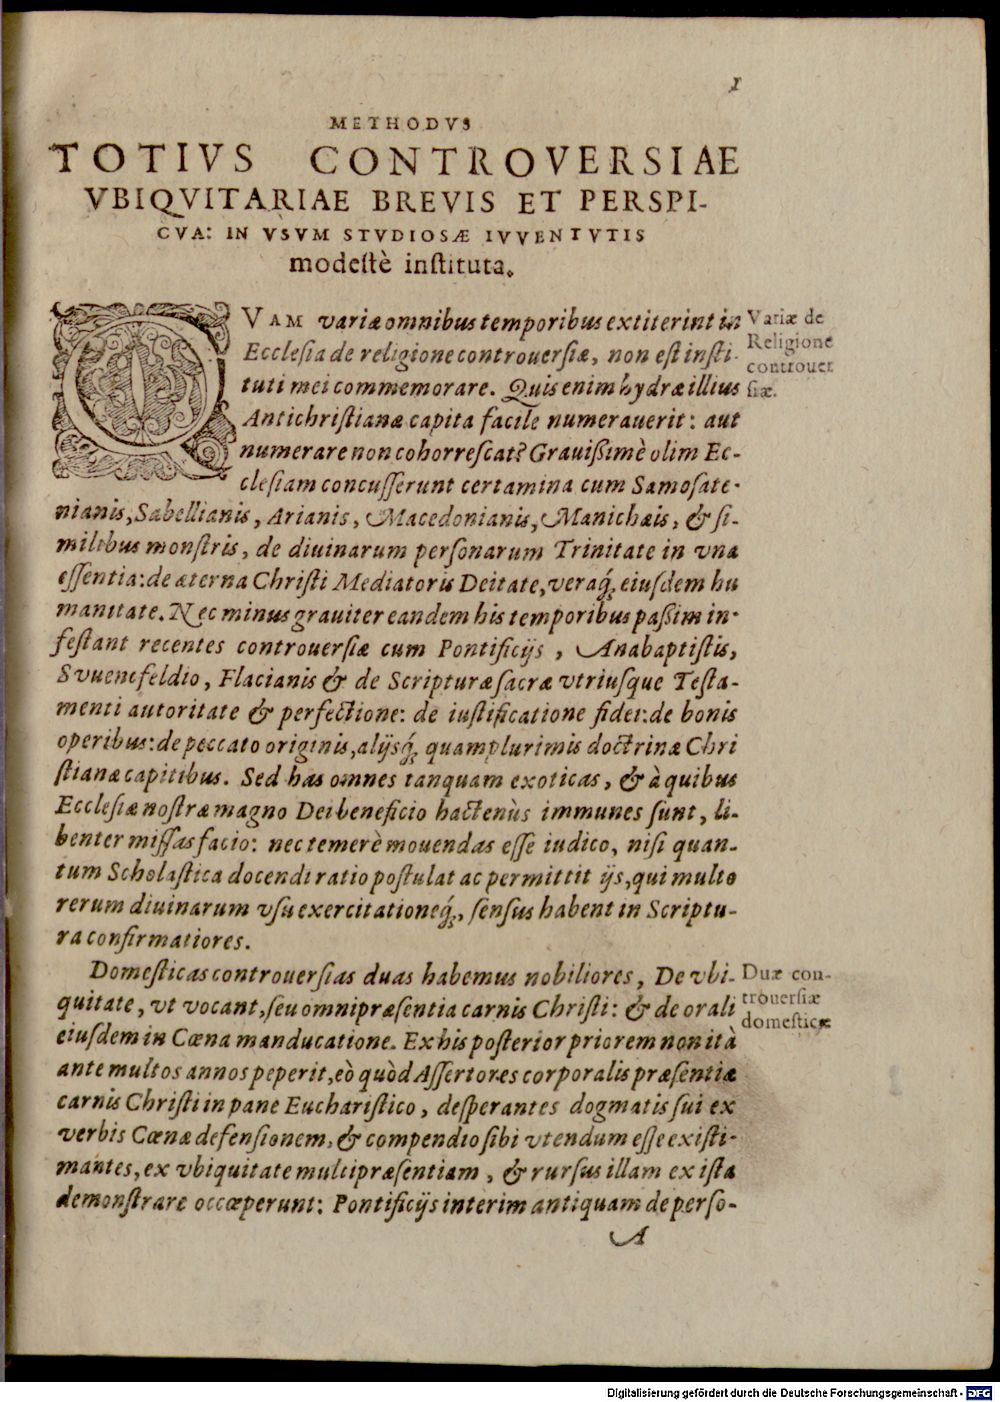 1
METHODVS
TOTIVS CONTROVERSIAE
VBIQVITARIAE BREVIS ET PERSPI-
CVA: IN VSVM STVDIOSÆ IVVENTVTIS
modeſtè inſtituta.
QVAM variæ omnibus temporibus extiterint in
Eccleſia de religione controuerſiæ, non eſt inſti-
tuti mei commemorare. Quis enim hydræ illius
Antichriſtianæ capita facile numerauerit: aut
numerare non cohorreſcat? Grauißimè olim Ec-
cleſiam concuſſerunt certamina cum Samoſate-
nianis, Sabellianis, Arianis, Macedonianis, Manichæis, & ſi-
milibus monſtris, de diuinarum perſonarum Trinitate in vna
eſſentia: de æterna Chriſti Mediatoris Deitate, veraq́; eiuſdem hu
manitate. Nec minus grauiter eandem his temporibus paßim in-
feſtant recentes controuerſiæ cum Pontificijs, Anabaptiſtis,
Svuencfeldio, Flacianis & de Scripturæ ſacræ vtriuſque Teſta-
menti autoritate & perfectione: de iuſtificatione fidei: de bonis
operibus: de peccato originis, alijsq́; quamplurimis doctrinæ Chri
ſtianæ capitibus. Sed has omnes tanquam exoticas, & à quibus
Eccleſiæ noſtræ magno Dei beneficio hactenùs immunes ſunt, li-
benter miſſas facio: nec temerè mouendas eſſe iudico, niſi quan-
tum Scholaſtica docendi ratio poſtulat ac permittit ijs, qui multo
rerum diuinarum vſu exercitationeq́;, ſenſus habent in Scriptu-
ra confirmatiores.
Variæ de
Religione
controuer
ſiæ.
Domeſticas controuerſias duas habemus nobiliores, De vbi-
quitate, vt vocant, ſeu omnipræſentia carnis Chriſti: & de orali
eiuſdem in Cœna manducatione. Ex his poſterior priorem non ità
ante multos annos peperit, eò quòd Aſſertores corporalis præſentiæ
carnis Chriſti in pane Euchariſtico, deſperantes dogmatis ſui ex
verbis Cœnæ defenſionem, & compendio ſibi vtendum eſſe exiſti-
mantes, ex vbiquitate multipræſentiam, & rurſus illam ex iſta
demonſtrare occœperunt: Pontificijs interim antiquam de perſo-
Duæ con-
trouerſiæ
domeſticæ
A
Digitalisierung gefördert durch die Deutsche Forschungsgemeinschaft - DFG